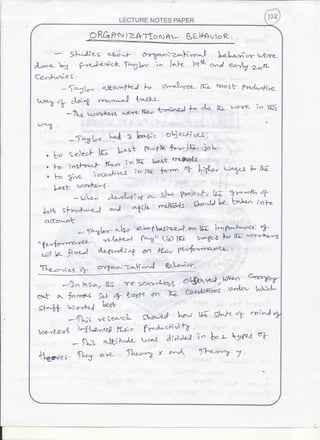 LECTURE NOTES PAPER
128
ORGANIZATIONAL BEHAVIOR.
- Studies about organizational behavior were
done by Frederick Taylor in late 19th and early 20th
Centuries.
- Taylor attempted to analyze the most productive
way of doing manual tasks.
- The workers were then trained to do the work in this
way.
- Taylor had 3 basic objectives:
• to select the best people for the job.
• to instruct them in the best methods
• to give incentives in the form of higher wages to the
best workers.
- When developing a s/w project, the growth of
both structured and agile methods should be taken into
account.
- Taylor also emphasized on the importance of
"performance related Pay" (ie) the wages to the workers
will be fixed depending on their performance.
Theories of organizational Behavior.
- In 1920, the researchers observed, when carrying
out a famous set of tests on the conditions under which
staff worked best.
- This research showed how the state of mind of
workers influenced their productivity.
- This attitude was divided in to 2 types of
theories. They are. Theory x and Theory y.